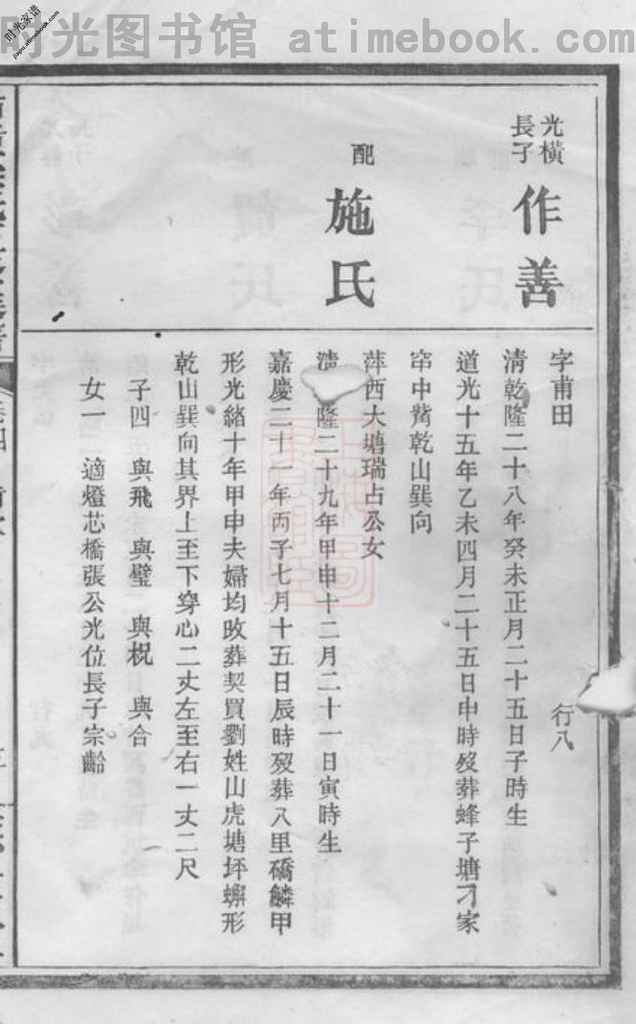 时光图书馆 atimebook.com
时光家谱
光橫
長子
作善
字甫田 行八
清乾隆二十八年癸未正月二十五日子時生
道光十五年乙未四月二十五日申時歿葬蜂子塘刁家
帘中觜乾山巽向
配
施氏
萍西大塘瑞占公女
隆二十九年甲申十二月二十一日寅時生
嘉慶二十一年丙子七月十五日辰時歿葬八里礄麟甲
形光緒十年甲申夫婦均改葬契買劉姓山虎塘坪蠏形
乾山巽向其界上至下穿心二丈左至右一丈二尺
子四 與飛 與璧 與柷 與合
女一 適燈芯橋張公光位長子宗齡